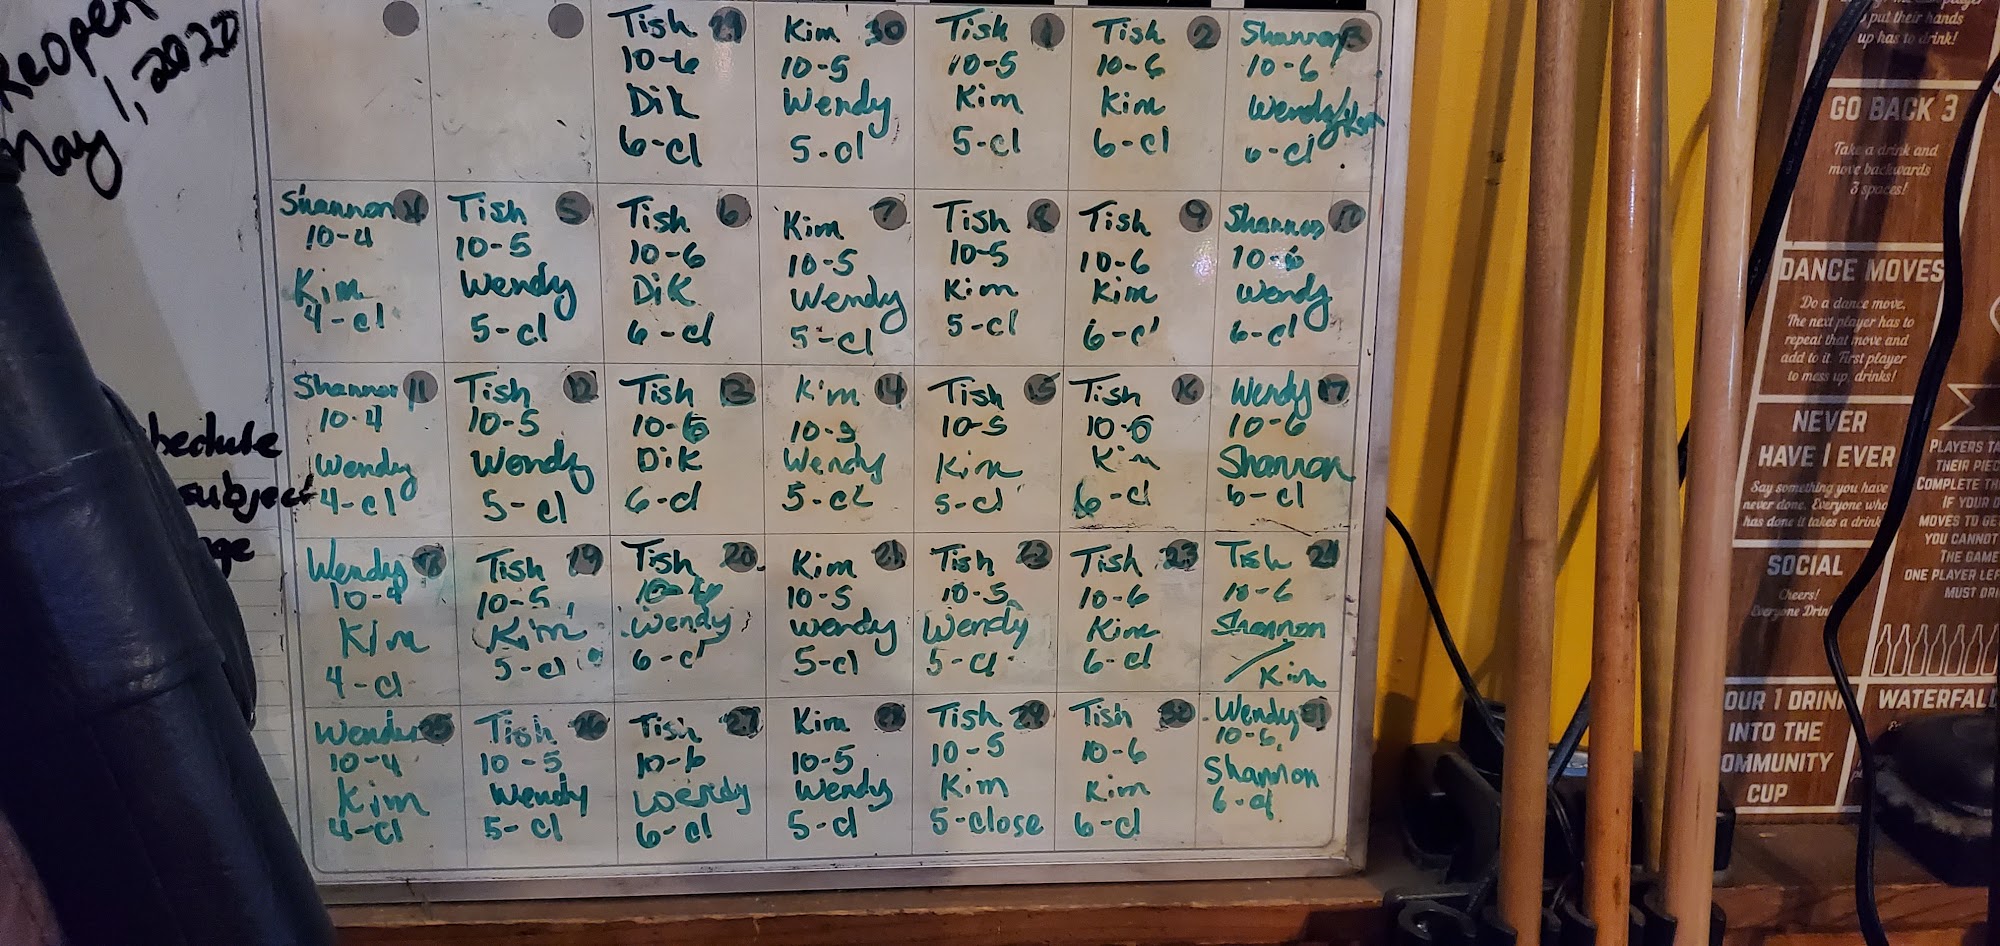 ReOpen
May 1, 2020
Tish 29
10-6
Dik
6-cl
Kim 30
10-5
Wendy
5-cl
Tish 1
10-5
Kim
5-cl
Tish 2
10-6
Kim
6-cl
Shannon 3
10-6
Wendy/Kim
6-cl
Shannon 4
10-4
Kim
4-cl
Tish 5
10-5
Wendy
5-cl
Tish 6
10-6
Dik
6-cl
Kim 7
10-5
Wendy
5-cl
Tish 8
10-5
Kim
5-cl
Tish 9
10-6
Kim
6-cl
Shannon 10
10-6
Wendy
6-cl
Shannon 11
10-4
Wendy
4-cl
Tish 12
10-5
Wendy
5-cl
Tish 13
10-6
Dik
6-cl
Kim 14
10-5
Wendy
5-cl
Tish 15
10-5
Kim
5-cl
Tish 16
10-6
Kim
6-cl
Wendy 17
10-6
Shannon
6-cl
hedule
subject
Wendy 18
10-4
Kim
4-cl
Tish 19
10-5
Kim
5-cl
Tish 20
10-6
Wendy
6-cl
Kim 21
10-5
Wendy
5-cl
Tish 22
10-5
Wendy
5-cl
Tish 23
10-6
Kim
6-cl
Tish 24
10-6
Shannon
/Kim
Wendy 25
10-4
Kim
4-cl
Tish 26
10-5
Wendy
5-cl
Tish 27
10-6
Wendy
6-cl
Kim 28
10-5
Wendy
5-cl
Tish 29
10-5
Kim
5-close
Tish 30
10-6
Kim
6-cl
Wendy 31
10-6
Shannon
6-cl
put their hands
up has to drink!
GO BACK 3
Take a drink and
move backwards
3 spaces!
DANCE MOVES
Do a dance move.
The next player has to
repeat that move and
add to it. First player
to mess up, drinks!
NEVER
HAVE I EVER
Say something you have
never done. Everyone who
has done it takes a drink
SOCIAL
Cheers!
Everyone Drin
OUR 1 DRINK
INTO THE
OMMUNITY
CUP
PLAYERS TA
THEIR PIEC
COMPLETE TH
IF YOUR O
MOVES TO GE
YOU CANNOT
THE GAME
ONE PLAYER LEF
MUST DRI
WATERFALL